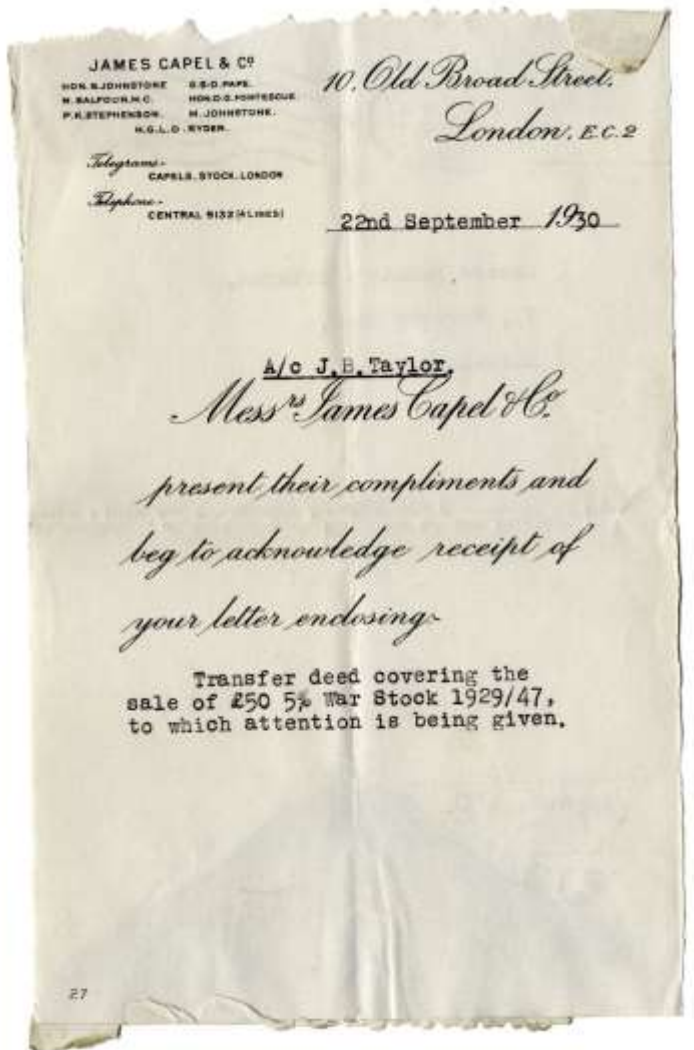 JAMES CAPEL & Cº
HON. B. JOHNSTONE G.S.D. PAPE.
N. BALFOUR. M.C. HON. D.G. FORTESCUE.
P.K. STEPHENSON. M. JOHNSTONE.
H.G.L.D. RYDER.
Telegrams-
CAPELS. STOCK. LONDON
Telephone-
CENTRAL 6132 (4 LINES)
10, Old Broad Street,
London, E.C.2
22nd September 1930
A/c J.B.Taylor.
Messrs James Capel & Co.
present their compliments and
beg to acknowledge receipt of
your letter enclosing-
Transfer deed covering the
sale of £50 5% War Stock 1929/47,
to which attention is being given.
27